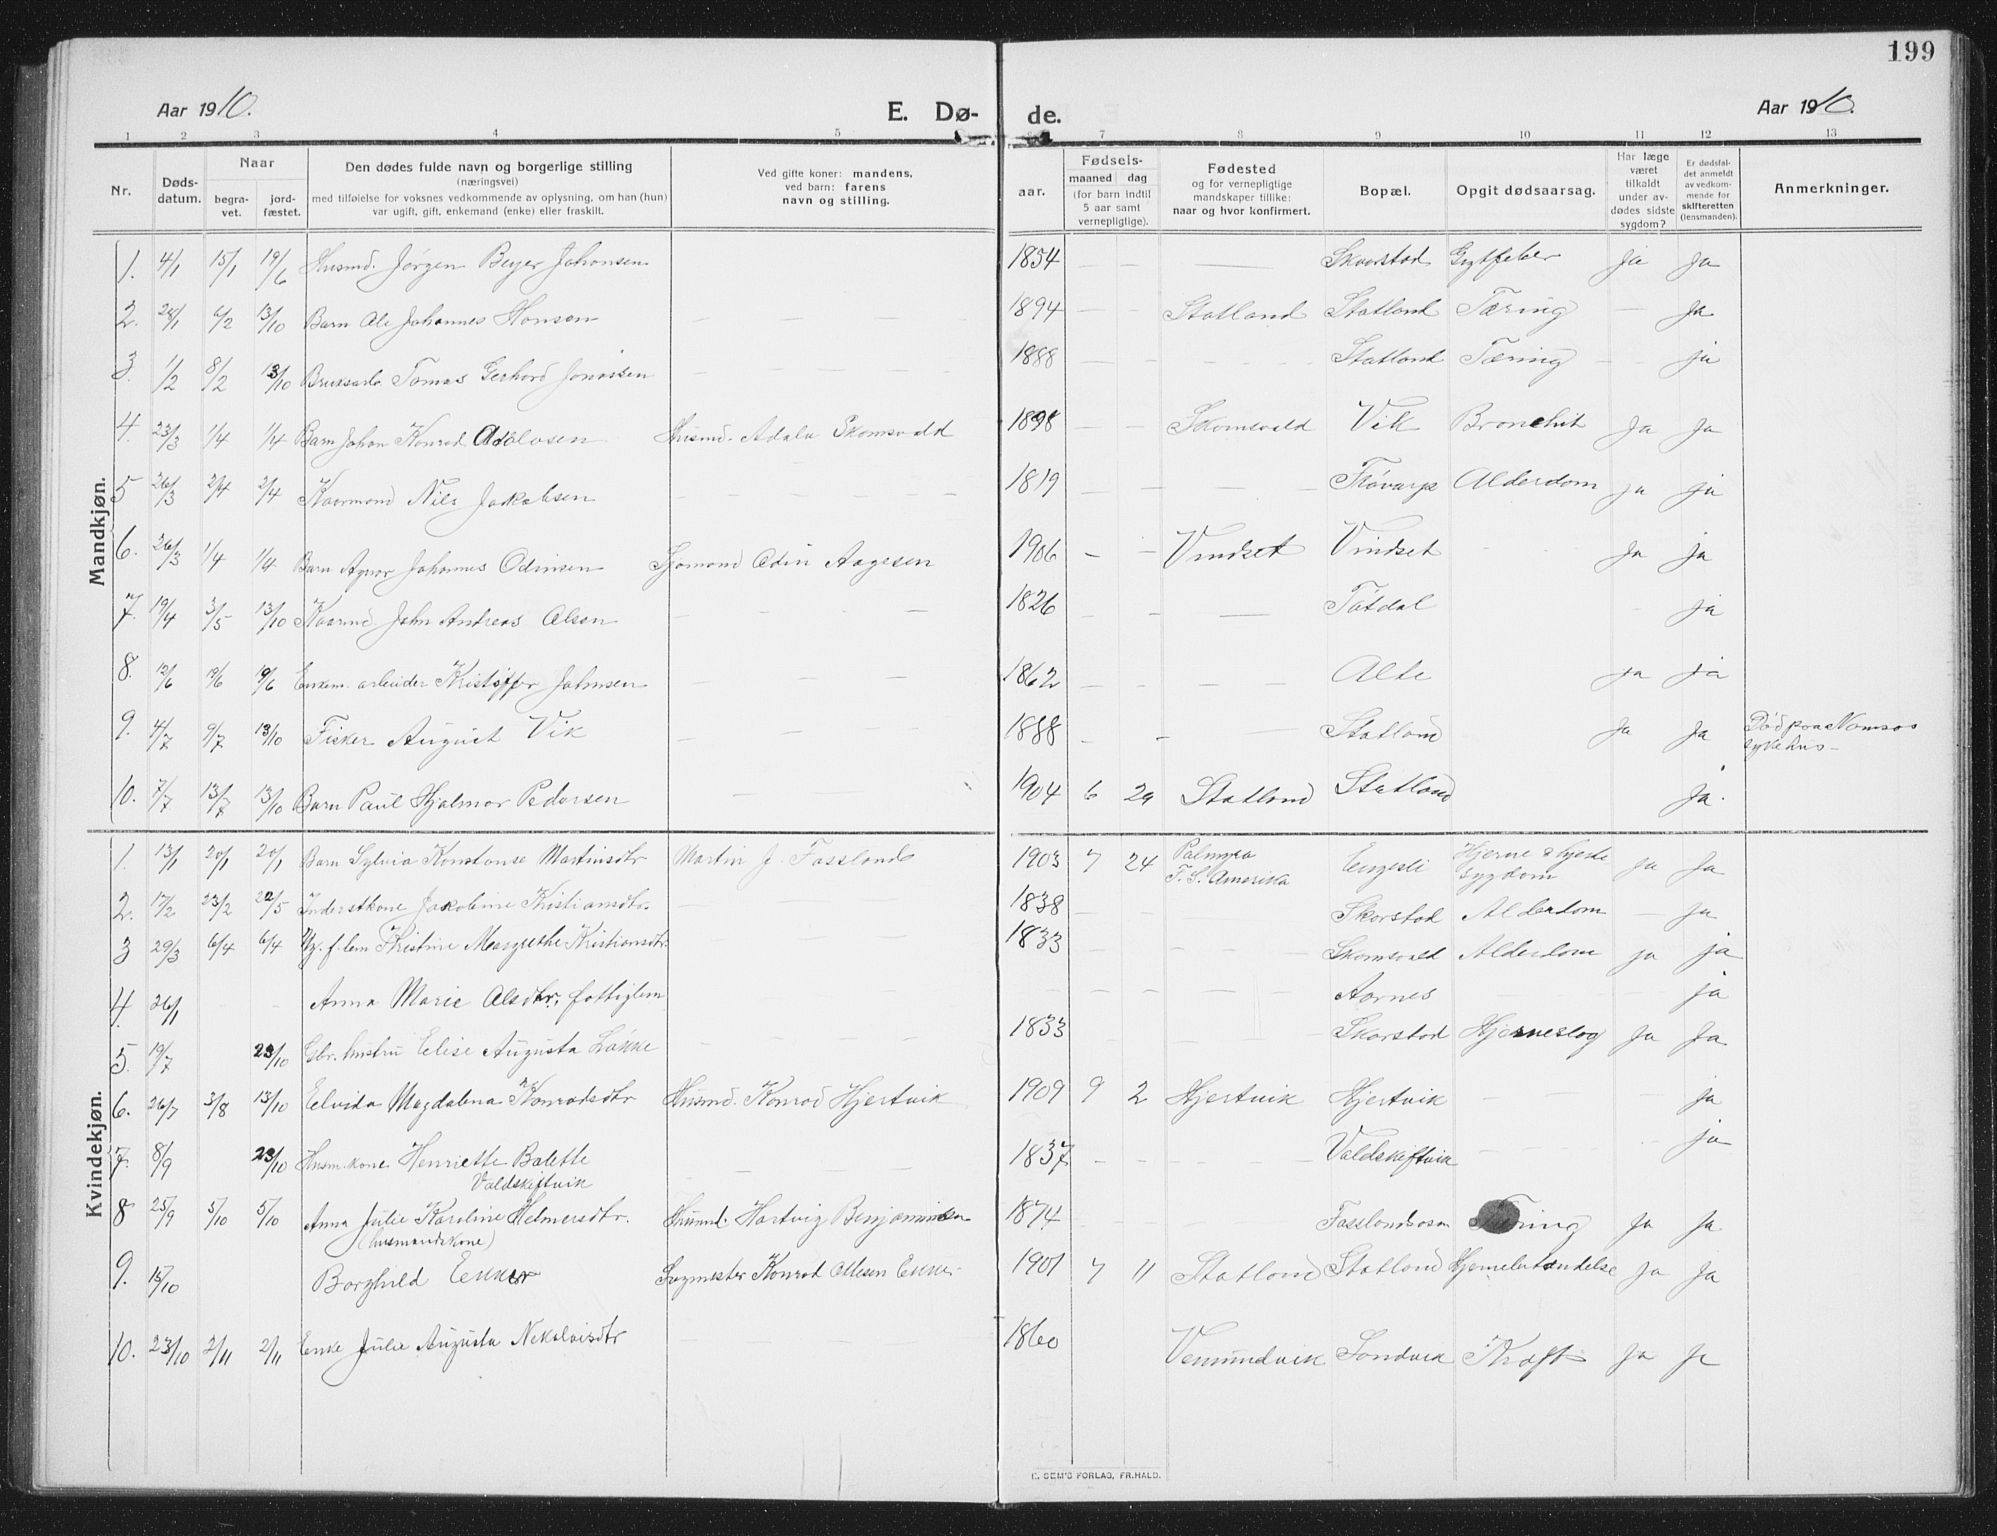 199
Aar 1910. E. Dø- de. Aar 1910.
1 2 3 4 5 7 8 9 10 11 12 13
Nr. Døds-datum. Naar begra-vet. jord-fæstet. Den dødes fulde navn og borgerlige stilling (næringsvei) med tilføielse for voksnes vedkommende av oplysning, om han (hun) var ugift, gift, enkemand (enke) eller fraskilt. Ved gifte koner: mandens, ved barn: farens navn og stilling. aar. Fødsels- maaned dag (for barn indtil 5 aar samt vernepligtige). Fødested og for vernepligtige mandskaper tillike: naar og hvor konfirmert. Bopæl. Opgit dødsaarsag. Har læge været tilkaldt under av-dødes sidste sygdom? Er dødsfal-det anmeldt av vedkom-mende for skifteretten (lensmanden). Anmerkninger.
Mandkjøn.
1. 4/1 15/1 19/6 Husmd. Jørgen Beyer Johansen — — — 1854 — — — Skorstad Gigtfeber Ja Ja
2. 28/1 6/2 13/10 Barn Ole Johannes Hansen — — — 1894 — — Statland Statland Tæring — Ja
3. 1/2 8/2 13/10 Bruksarb. Tomas Gerhard Jonassen — — — 1888 — — — Statland Tæring — ja
4. 23/3 1/4 1/4 Barn Johan Konrad Adolvsen Husmd. Adolv Skomsvold 1898 — — Skomsvold Vik Bronchit Ja Ja
5 26/3 2/4 2/4 Kaarmand Nils Jakobsen — — — 1819 — — — Alderdom ja ja
6. 26/3 1/4 1/4 Barn Agnor Johannes Odinsen Sjømand Odin Aagesen 1906 — — Vindset Vindset — Ja ja
7. 19/4 3/5 13/10 Kaarmd John Andreas Olsen — — — 1826 — — — Tøtdal — ja
8. 12/6 19/6 19/6 Enkem. arbeider Kristoffer Johnsen — — — 1862 — — — Alte ja ja
9. 4/7 9/7 13/10 Fisker August Vik — — — 1888 — — — Statland Ja Ja Død paa Namsos sykehus —
10. 7/7 13/7 13/10 Barn Paul Hjalmar Pedersen — — — 1904 6 29 Statland Statland ja.
Kvindekjøn.
1. 13/1 20/1 20/1 Barn Sylvia Konstanse Martinsdtr Martin J. Fossland 1903 7 24 Palmyra F. S. Amerika Engesli Hjerne & hjerte sygdom Ja Ja
2. 17/2 23/2 22/5 Inderstkone Jakobine Kristiansdtr. — — — 1838 — — — Skorstad Alderdom — ja
3 29/3 6/4 6/4 Ug. f. lem Kristine Margrethe Kristiansdtr. — — — 1833 — — — Skomsvold Alderdom ja ja
4. 26/1 — — Anna Marie Olsdtr, fattiglem — — Aarnes — — ja
5. 19/7 23/10 Gbr. hustru Elise Augusta Løkke — — — 1833 — — — Skorstad Hjerneslag Ja Ja
6. 26/7 3/8 13/10 Elvida Magdalena Konradsdtr Husmd. Konrad Hjertvik 1909 9 2 Hjertvik Hjertvik — — ja
7. 8/9 23/10 Husm.kone Henriette Baletle Valdskiftvik — — — 1837 — — — Valdskiftvik — — ja
8 25/9 5/10 5/10 Anna Julie Karoline Helmersdtr. (husmandskone) Husmd. Hartvig Benjaminsen 1874 — — — Fosslandsosen Tæring Ja Ja
9. 15/10 Borghild Enker Sagmester Konrad Ottesen Enker 1901 7 11 Statland Statland Hjernebetændelse Ja Ja
10. 23/10 2/11 2/11 Enke Julie Augusta Nekolaisdtr — — — 1860 Vemundvik Sandvik Kræft Ja Ja
E. SEM'S FORLAG, FR.HALD.